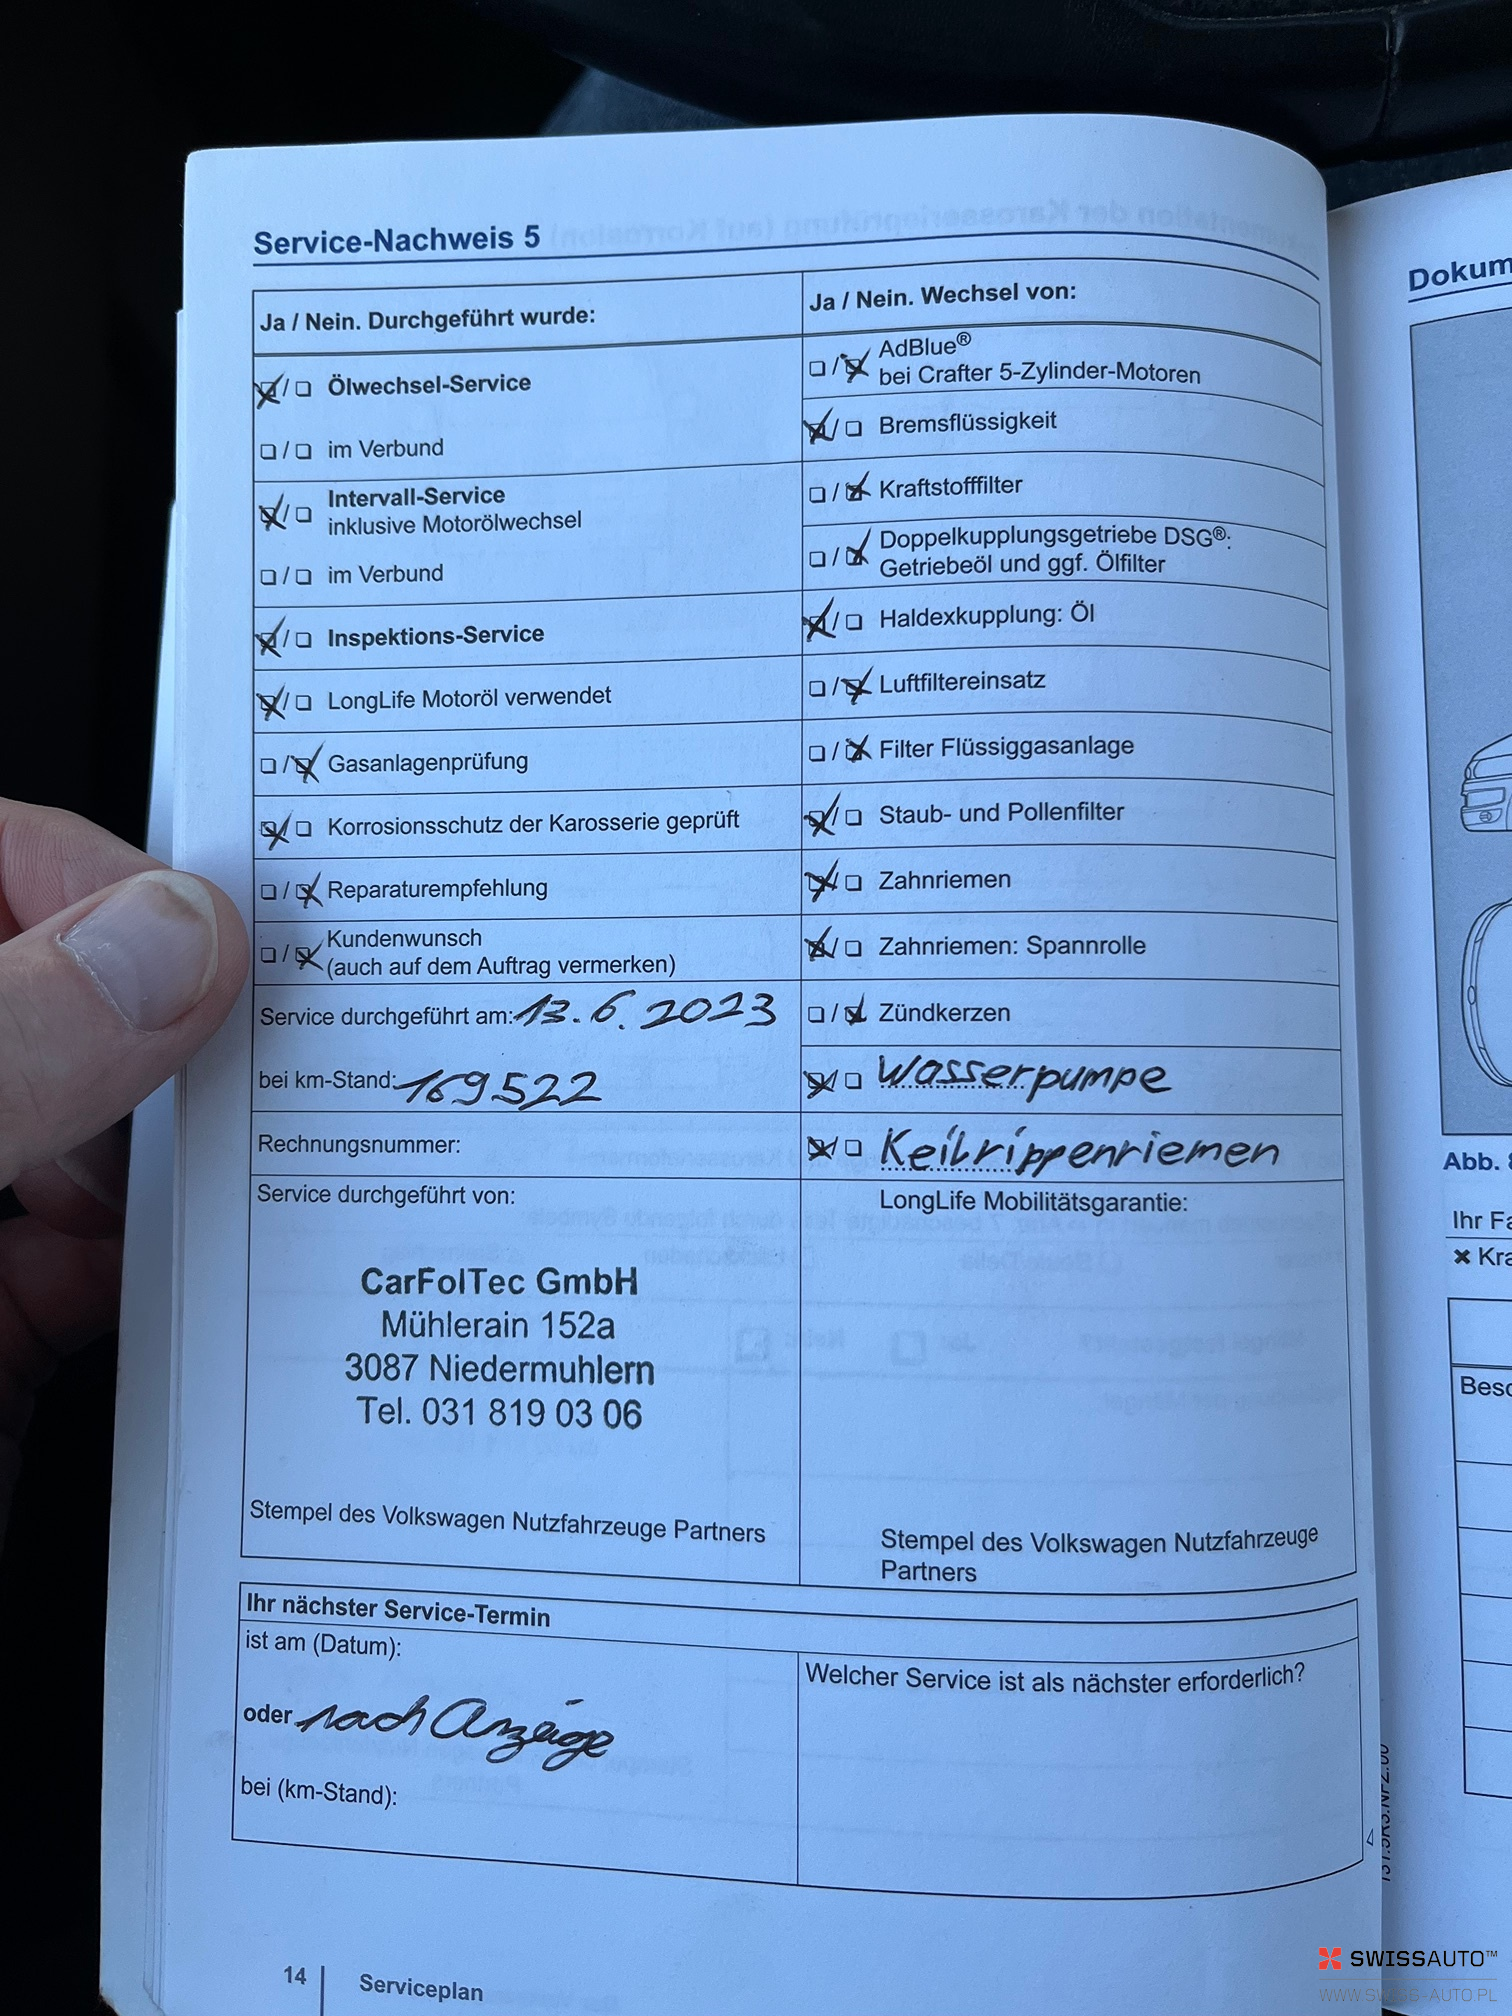 Service-Nachweis 5
Ja / Nein. Durchgeführt wurde:
Ölwechsel-Service
im Verbund
Intervall-Service
inklusive Motorölwechsel
im Verbund
Inspektions-Service
LongLife Motoröl verwendet
Gasanlagenprüfung
Korrosionsschutz der Karosserie geprüft
Reparaturempfehlung
Kundenwunsch
(auch auf dem Auftrag vermerken)
Service durchgeführt am: 13.6.2023
bei km-Stand: 169522
Rechnungsnummer:
Service durchgeführt von:
CarFolTec GmbH
Mühlerain 152a
3087 Niedermuhlern
Tel. 031 819 03 06
Stempel des Volkswagen Nutzfahrzeuge Partners
Ja / Nein. Wechsel von:
AdBlue®
bei Crafter 5-Zylinder-Motoren
Bremsflüssigkeit
Kraftstofffilter
Doppelkupplungsgetriebe DSG®:
Getriebeöl und ggf. Ölfilter
Haldexkupplung: Öl
Luftfiltereinsatz
Filter Flüssiggasanlage
Staub- und Pollenfilter
Zahnriemen
Zahnriemen: Spannrolle
Zündkerzen
Wasserpumpe
Keilrippenriemen
LongLife Mobilitätsgarantie:
Stempel des Volkswagen Nutzfahrzeuge
Partners
Ihr nächster Service-Termin
ist am (Datum):
oder nach Anzeige
bei (km-Stand):
Welcher Service ist als nächster erforderlich?
14 Serviceplan
Dokum
Abb.
Ihr Fa
Kra
Besc
SWISSAUTO™
WWW.SWISS-AUTO.PL